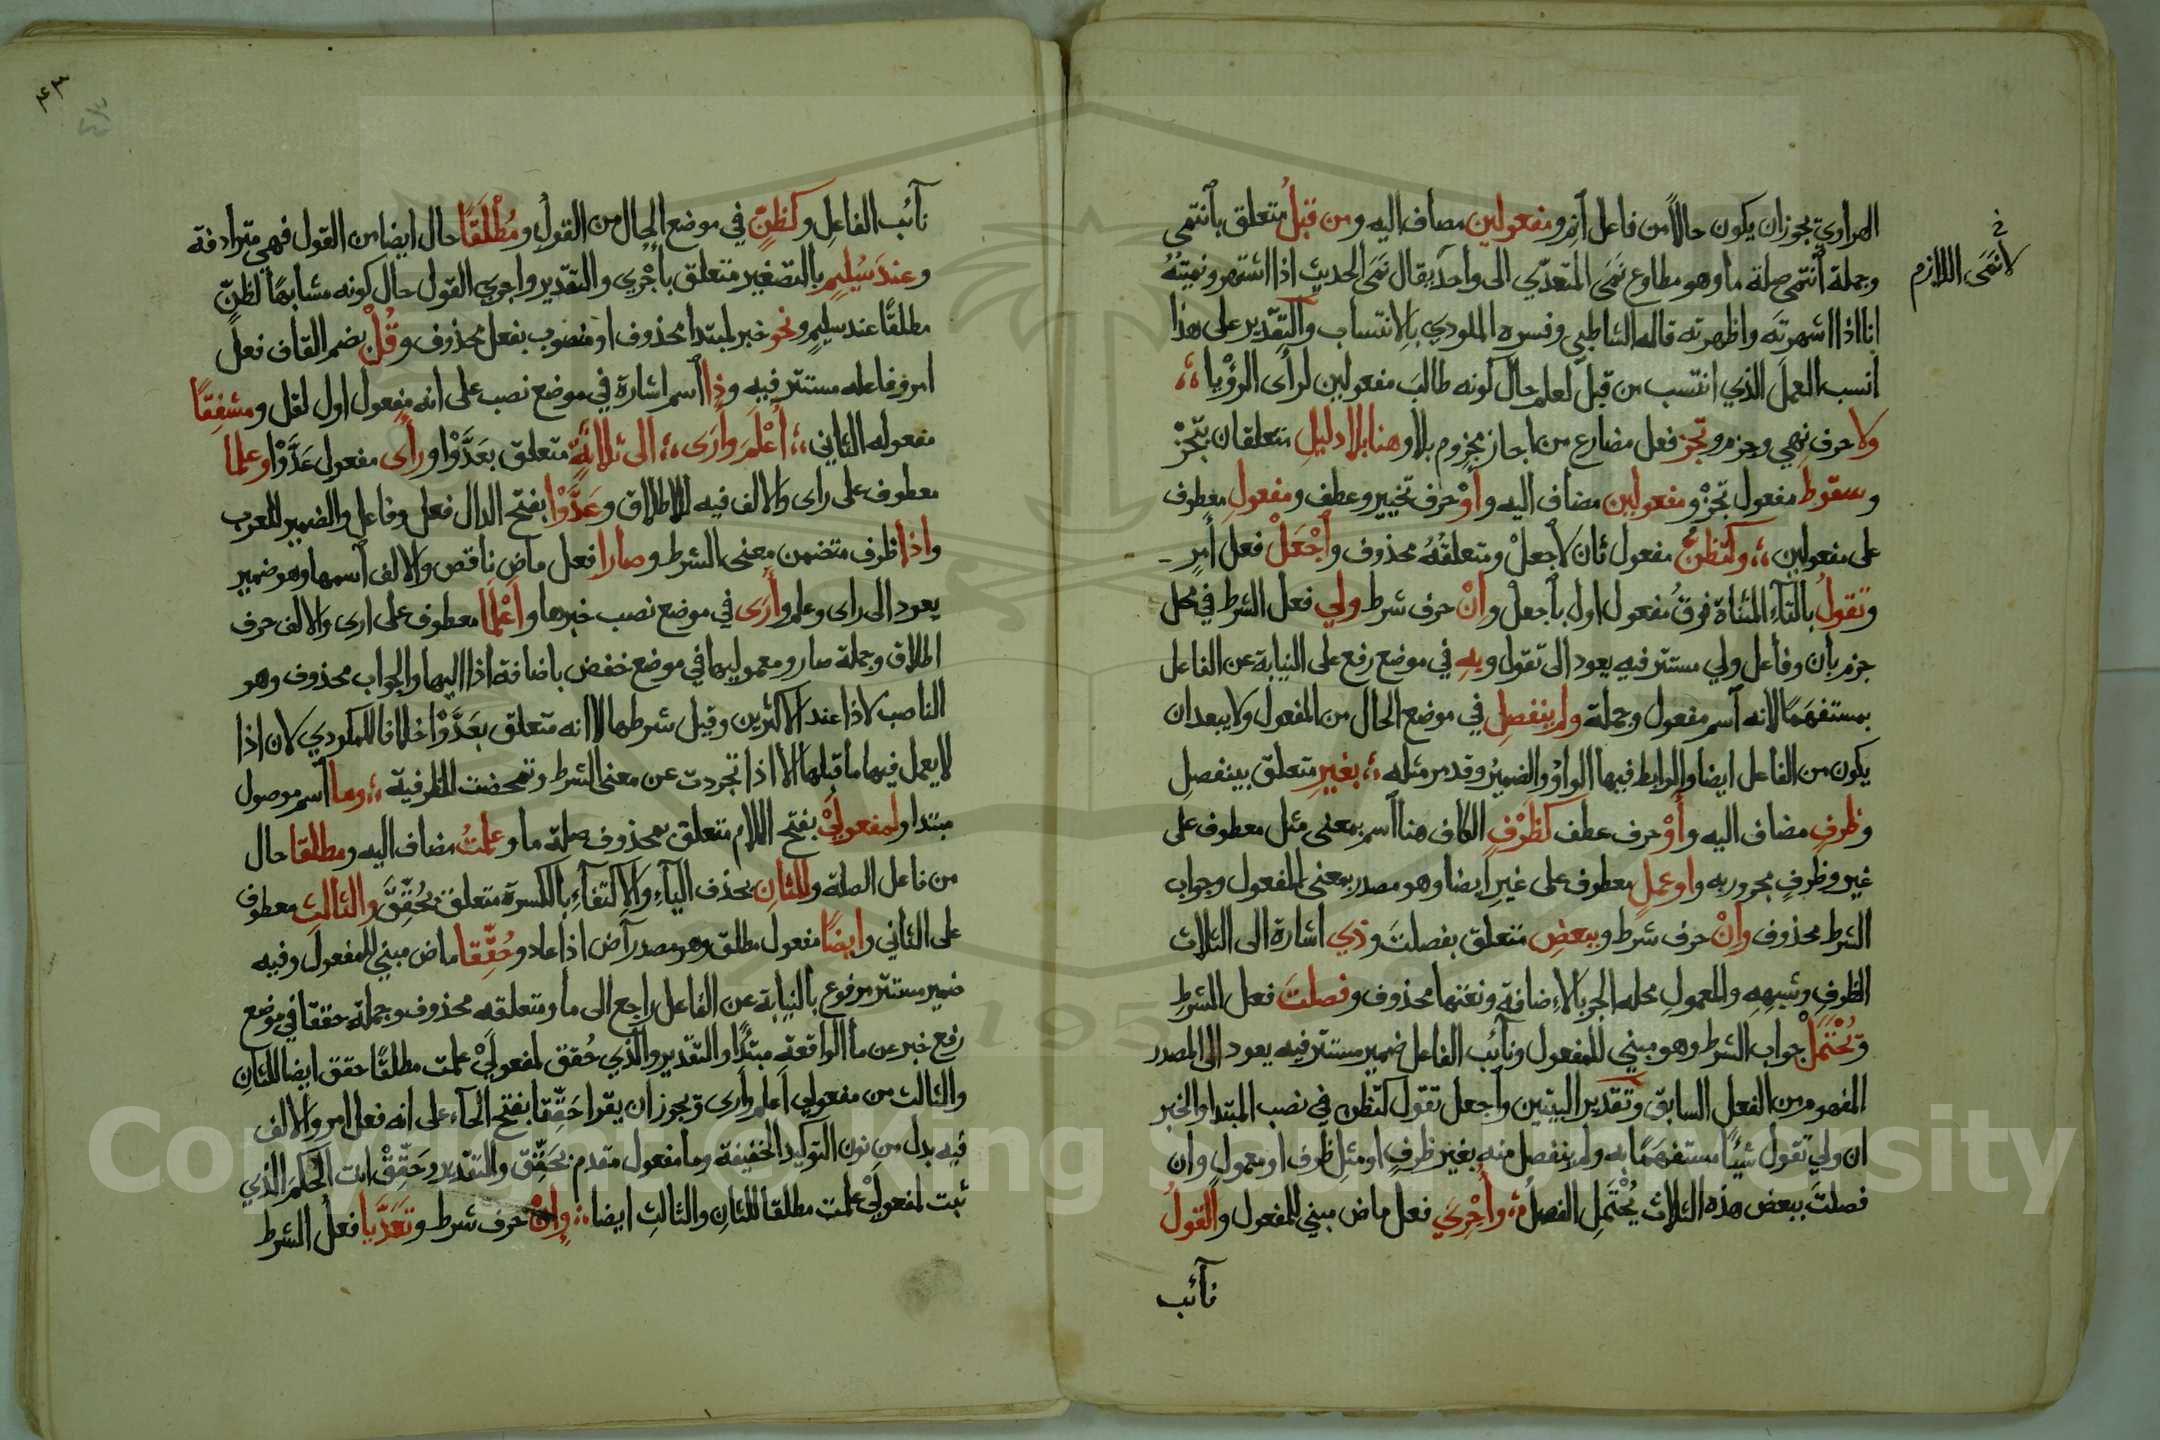 الهراوي يجوز ان يكون حالا من فاعل انم ومفعولين مضاف اليه ومن قبل متعلق بانتمى
وجملة انتمى صلة ما وهو مطاوع نمى المتعدي الى واحد يقال نمى الحديث اذا اشتهر ونميته
لا نمى اللازم
انا اذا شهرته واظهرته قاله الشاطبي وفسره المكودي بالانتساب والتقدير على هذا
انسب العمل الذي انتسب من قبل لعلم حال كونه طالب مفعولين لرأى الرؤيا
ولا حرف نهي وجزم وتجز فعل مضارع من اجاز مجزوم بلا وهنا بلا دليل متعلقان بتجز
وسقوط مفعول تجز ومفعولين مضاف اليه وأو حرف تخيير وعطف ومفعول معطوف
على مفعولين وكتظن مفعول ثان لاجعل ومتعلقه محذوف واجعل فعل امر
وتقول بالتاء المثناة فوق مفعول اول باجعل وان حرف شرط ولي فعل الشرط في محل
جزم بان وفاعل ولي مستتر فيه يعود الى تقول وبه في موضع رفع على النيابة عن الفاعل
بمستفهما لانه اسم مفعول وجملة ولم ينفصل في موضع الحال من المفعول ولا يبعد ان
يكون من الفاعل ايضا والرابط فيها الواو والضمير وقد مر مثله بغير متعلق بينفصل
وظرف مضاف اليه وأو حرف عطف كظرف الكاف هنا اسم بمعنى مثل معطوف على
غير وظرف مجرور به واو عمل معطوف على غير ايضا وهو مصدر بمعنى المفعول وجواب
الشرط محذوف وان حرف شرط وببعض متعلق بفصلت وذي اشارة الى الثلاث
الظرف وشبهه والمعمول محله الجر بالاضافة ونعتها محذوف وفصلت فعل الشرط
ويحتمل جواب الشرط وهو مبني للمفعول ونائب الفاعل ضمير مستتر فيه يعود الى المصدر
المفهوم من الفعل السابق وتقدير البيتين واجعل تقول كتظن في نصب المبتدا والخبر
ان ولي تقول شيئا مستفهما به ولم ينفصل منه بغير ظرف او مثل ظرف او معمول وان
فصلت ببعض هذه الثلاث يحتمل الفصل واجري فعل ماض مبني للمفعول والقول
نائب
نائب الفاعل وكظن في موضع الحال من القول ومطلقا حال ايضا من القول فهي مترادفة
وعند سليم بالتصغير متعلق بأجري والتقدير واجري القول حال كونه مشابها لظن
مطلقا عند سليم ونحو خبر لمبتدا محذوف او منصوب بفعل محذوف وقل بضم القاف فعل
امر وفاعله مستتر فيه وذا اسم اشارة في موضع نصب على انه مفعول اول لقل ومشفقا
مفعوله الثاني أعلم وأرى الى ثلاثة متعلق بعدوا ورأى مفعول عدوا وعلما
معطوف على راى والالف فيه للاطلاق وعدوا بفتح الدال فعل وفاعل والضمير للعرب
واذا ظرف متضمن معنى الشرط وصارا فعل ماض ناقص والالف اسمها وهو ضمير
يعود الى راى وعلم وأرى في موضع نصب خبرها وأعلما معطوف على ارى والالف حرف
اطلاق وجملة صار ومعموليها في موضع خفض باضافة اذا اليها والجواب محذوف وهو
الناصب لاذا عند الاكثرين وقيل شرطها لا انه متعلق بعدوا خلافا للمكودي لان اذا
لا يعمل فيها ما قبلها الا اذا تجردت عن معنى الشرط وتمحضت للظرفية وما اسم موصول
مبتدا ولمفعولي بفتح اللام متعلق بمحذوف صلة ما وعلمت مضاف اليه ومطلقا حال
من فاعل الصلة وللثان بحذف الياء والاكتفاء بالكسرة متعلق بحقق والثالث معطوف
على الثاني وايضا مفعول مطلق وهو مصدر آض اذا عاد وحققا ماض مبني للمفعول وفيه
ضمير مستتر مرفوع بالنيابة عن الفاعل راجع الى ما ومتعلقه محذوف وجملة حققا في موضع
رفع خبر عن ما الواقعة مبتدا والتقدير والذي حقق لمفعولي علمت مطلقا حقق ايضا للثان
والثالث من مفعولي اعلم وارى ويجوز ان يقرا حققا بفتح الحاء على انه فعل امر والالف
فيه بدل من نون التوكيد الخفيفة وما مفعول مقدم بحقق والتقدير وحقق انت الحكم الذي
ثبت لمفعولي علمت مطلقا للثان والثالث ايضا وان حرف شرط وتعديا فعل الشرط